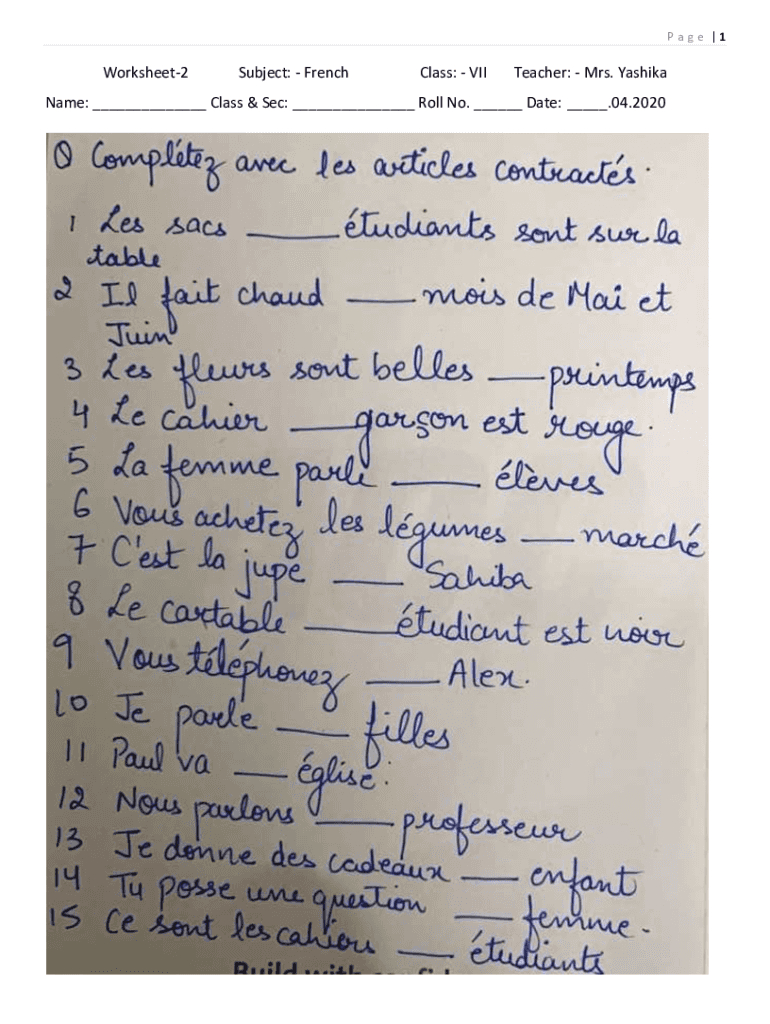 Page | 1
Worksheet-2 Subject: - French Class: - VII Teacher: - Mrs. Yashika
Name: ______________ Class & Sec: _______________ Roll No. ______ Date: _____.04.2020
Q Complétez avec les articles contractés.
1 Les sacs ______ étudiants sont sur la
table
2 Il fait chaud ____ mois de Mai et
Juin
3 Les fleurs sont belles ___ printemps
4 Le cahier _____ garçon est rouge.
5 La femme parle _____ élèves
6 Vous achetez les légumes ___ marché
7 C'est la jupe ____ Sahiba
8 Le cartable ______ étudiant est noir
9 Vous téléphonez ____ Alex.
10 Je parle ____ filles
11 Paul va ___ église.
12 Nous parlons _____ professeur
13 Je donne des cadeaux ___ enfant
14 Tu posse une question ___ femme.
15 Ce sont les cahiers ___ étudiants
Build with